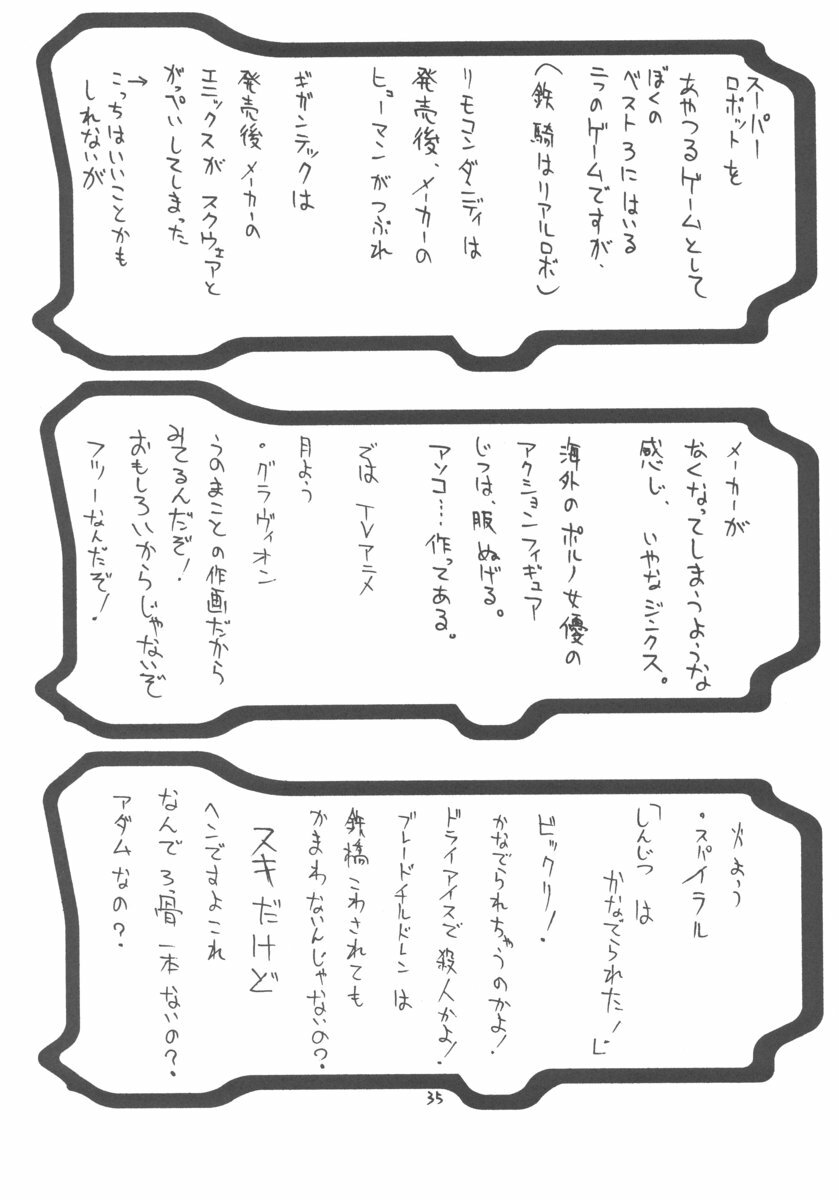 スーパー
ロボットを
あやつるゲームとして
ぼくの
ベスト3にはいる
二つのゲームですが、
(鉄騎はリアルロボ)
リモコンダンディは
発売後、メーカーの
ヒューマンがつぶれ
ギガンテックは
発売後メーカーの
エニックスが スクウェアと
がっぺいしてしまった
→
こっちはいいことかも
しれないが
メーカーが
なくなってしまうような
感じ、 いやなジンクス。
海外のポルノ女優の
アクションフィギュア
じつは、服ぬげる。
アソコ‥‥作ってある。
では TVアニメ
月よう
・グラヴィオン
うのまことの作画だから
みてるんだぞ!
おもしろいからじゃないぞ
フツーなんだぞ!
火よう
・スパイラル
「しんじつ は
かなでられた!」
ビックリ!
かなでられちゃうのかよ!
ドライアイスで殺人かよ!
ブレードチルドレン は
鉄橋 こわされても
かまわないんじゃないの?
スキだけど
ヘンですよこれ
なんで ろっ骨 一本ないの?
アダムなの?
35